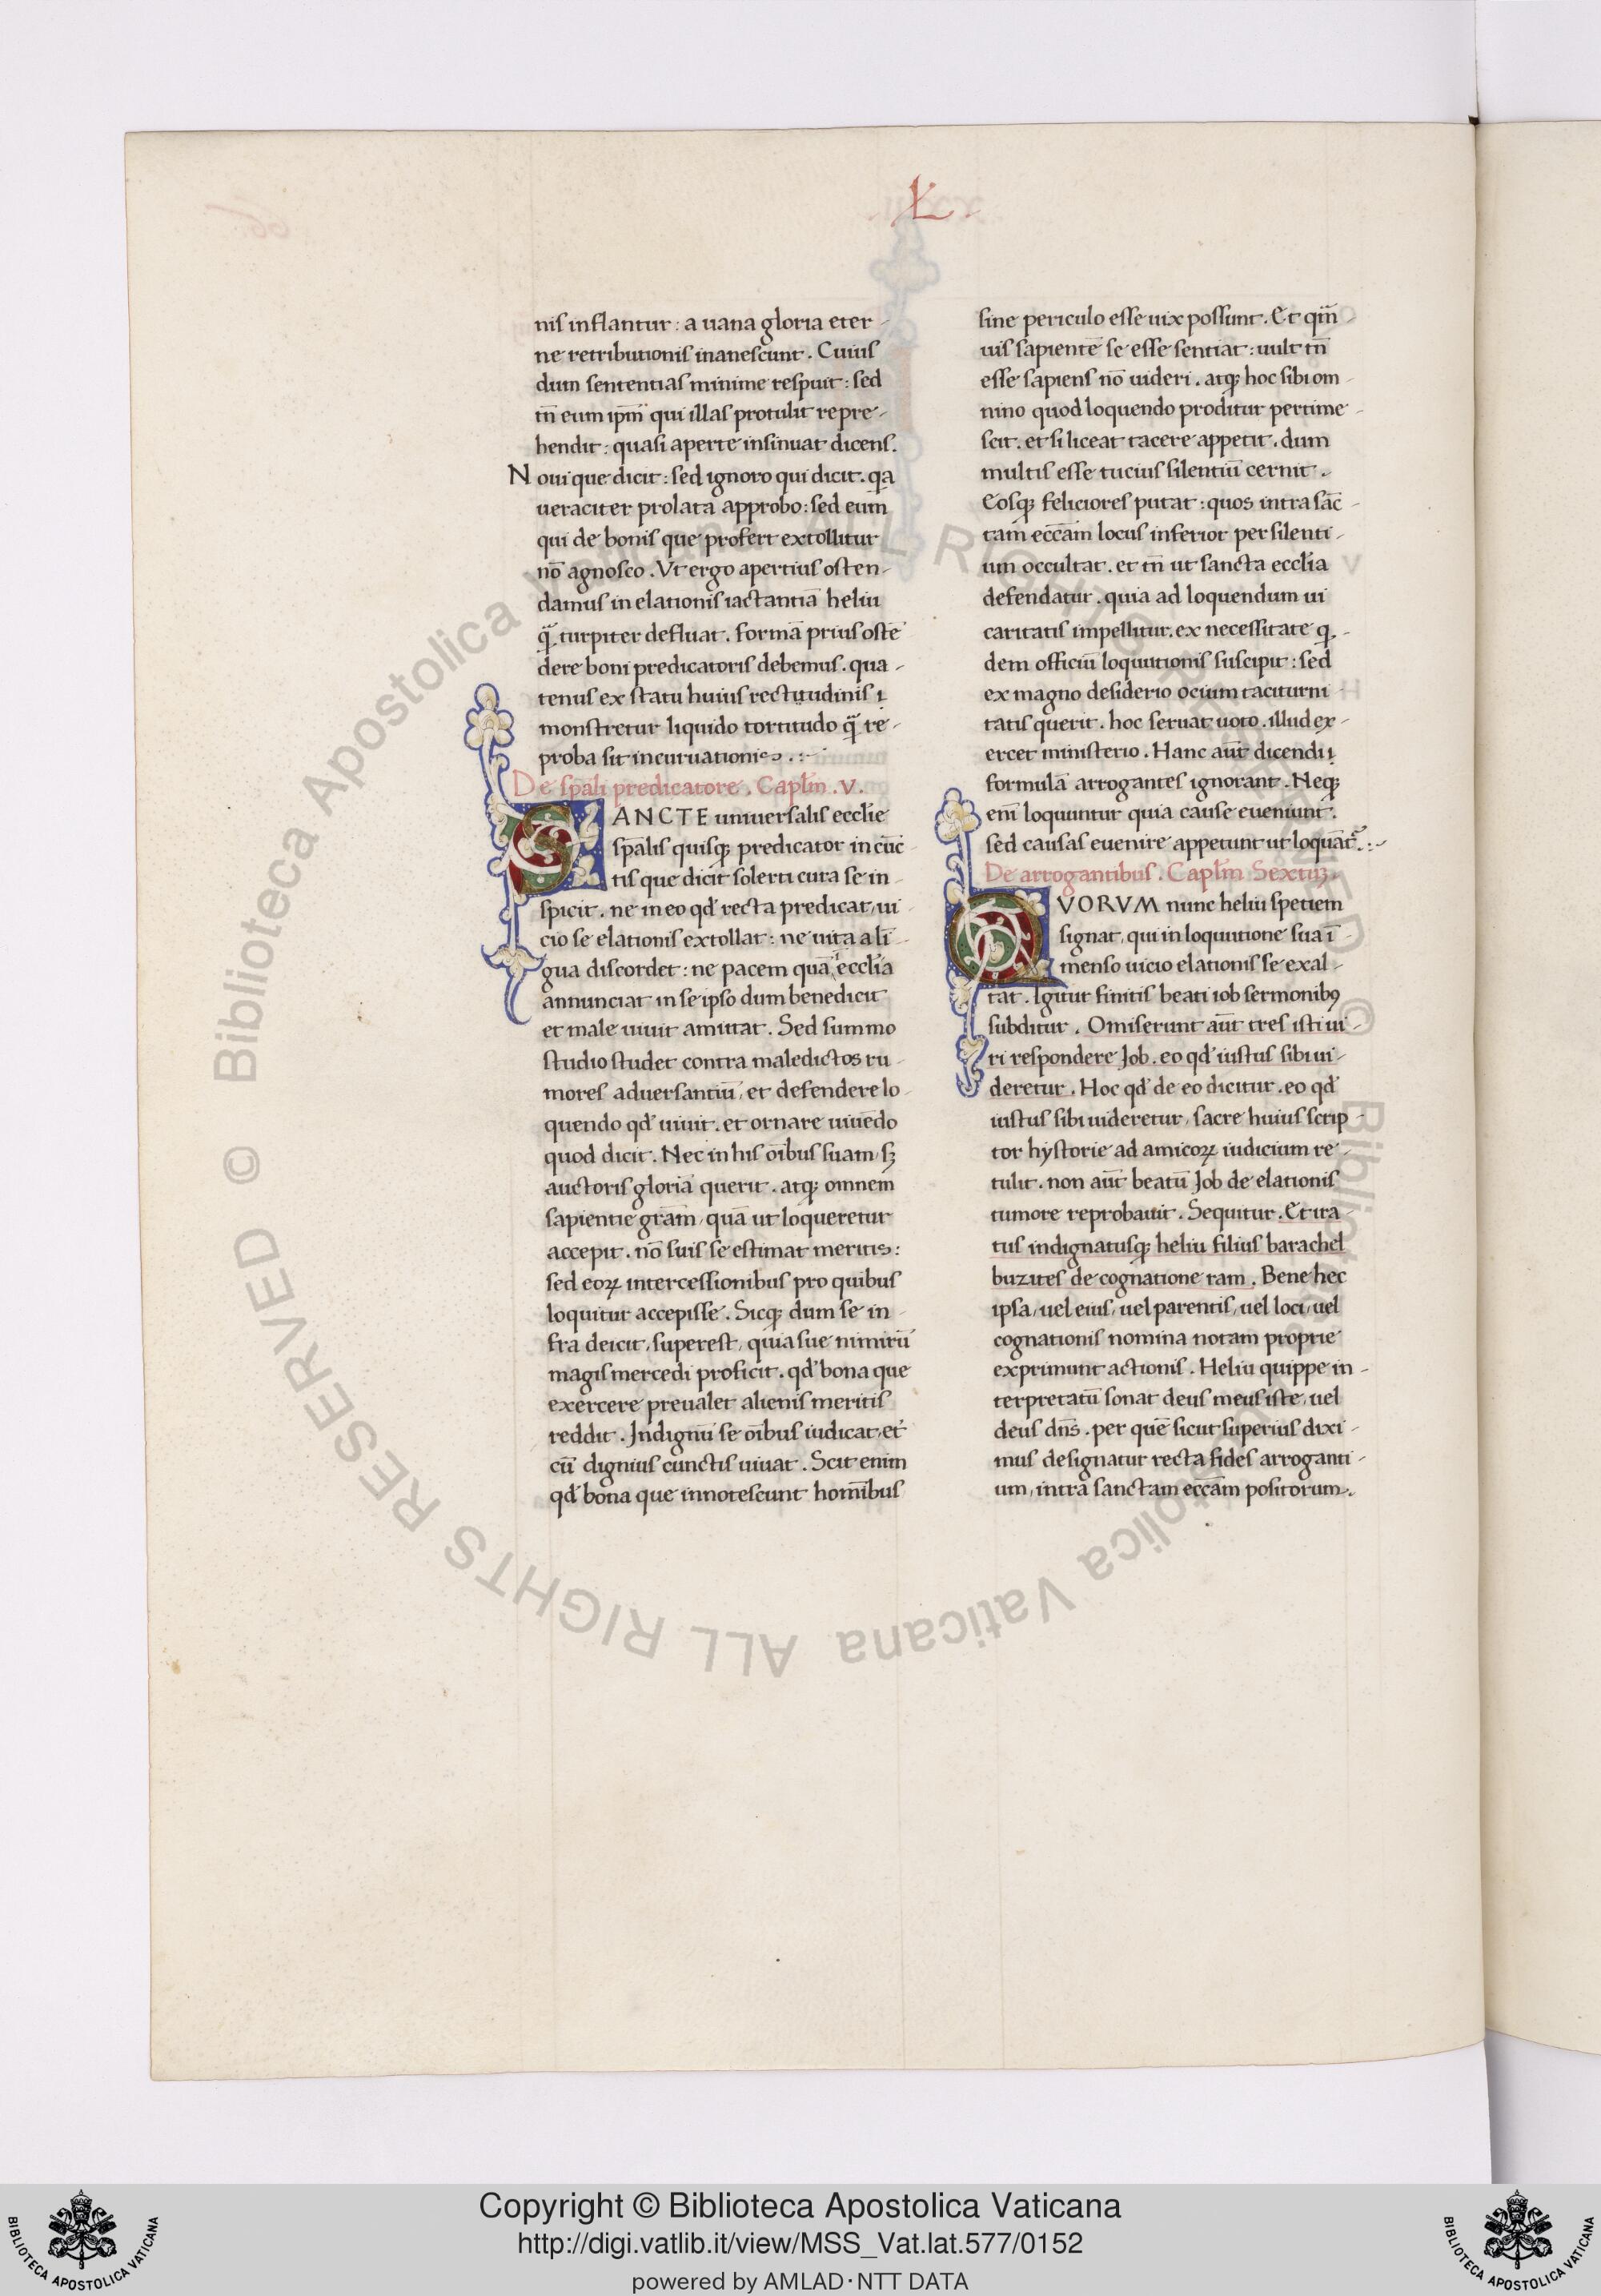 Ł
nis inflantur : a uana gloria eter-
ne retributionis inanescunt . Cuius
dum sententias minime respuit : sed
tñ eum ipm̄ qui illas protulit repre-
hendit : quasi aperte insinuat dicens.
Noui que dicit : sed ignoro qui dicit . qa
ueraciter prolata approbo : sed eum
qui de bonis que profert extollitur
nō agnosco . Vt ergo apertius osten-
damus in elationis iactantiā heliu
q̄ turpiter defluat . formā prius ostē
dere boni predicatoris debemus . qua-
tenus ex statu huius rectitudinis ı
monstretur liquido tortitudo q̄ re-
proba sit incuruationis . : -
De sp̄ali predicatore . Caplm̄ . v .
SANCTE uniuersalis ecclīe
sp̄alis quisq; predicator in cūc
tis que dicit solerti cura se in-
spicit . ne in eo qd' recta predicat, ui
cio se elationis extollat : ne uita a li-
gua discordet : ne pacem quā ı ecclīa
annunciat in se ipso dum benedicit
et male uiuit amittat . Sed summo
studio studet contra maledictos ru-
mores aduersantiū, et defendere lo-
quendo qd' uiuit . et ornare uiuēdo
quod dicit . Nec in his oībus suam, sȝ
auctoris gloriā querit . atq; omnem
sapientie gram̄, quā ut loqueretur
accepit . nō suis se estimat meritis :
sed eoꝝ intercessionibus pro quibus
loquitur accepisse . Sicq; dum se in-
fra deicit, superest, quia sue nimirū
magis mercedi proficit . qd' bona que
exercere preualet alienis meritis
reddit . Indignū se oībus iudicat, et
cū dignius cunctis uiuat . Scit enim
qd' bona que innotescunt homībus
sine periculo esse uix possunt . Et qm̄-
uis sapientē se esse sentiat : uult tñ
esse sapiens nō uideri . atq; hoc sibi om-
nino quod loquendo proditur pertime-
scit . et si liceat tacere appetit . dum
multis esse tucius silentiū cernit .
Eosq; feliciores putat : quos intra sāc-
tam ecc̄am locus inferior per silenti-
um occultat . et tñ ut sancta ecclīa
defendatur . quia ad loquendum ui
caritatis impellitur . ex necessitate q.-
dem officiū loquutionis suscipit : sed
ex magno desiderio ocium taciturni-
tatis querit . hoc seruat uoto . illud ex-
ercet ministerio . Hanc aūt dicendi ı
formulā arrogantes ignorant . Neq;
enī loquuntur quia cause eueniunt .
sed causas euenire appetunt ut loquāt' . : -
De arrogantibus . Caplm̄ Sextuȝ .
QVORVM nunc heliu spetiem
signat, qui in loquutione sua ī
menso uicio elationis se exal-
tat . Igitur finitis beati iob sermonibꝰ
subditur . Omiserunt aūt tres isti ui-
ri respondere Job . eo qd' iustus sibi ui-
deretur . Hoc qd' de eo dicitur . eo qd'
iustus sibi uideretur, sacre huius scrip-
tor hystorie ad amicoꝝ iudicium re-
tulit . non aūt beatū Job de elationis
tumore reprobauit . Sequitur . Et ira-
tus indignatusq; heliu filius barachel
buzites de cognatione ram . Bene hec
ipsa, uel eius, uel parentis, uel loci, uel
cognationis nomina notam proprie
exprimunt actionis . Heliu quippe in-
terpretatū sonat deus meus iste, uel
deus dn̄s . per quē sicut superius dixi-
mus designatur recta fides arroganti-
um, intra sanctam ecc̄am positorum.
© Biblioteca Apostolica Vaticana ALL RIGHTS RESERVED © Biblioteca Apostolica Vaticana ALL RIGHTS RESERVED
Copyright © Biblioteca Apostolica Vaticana
http://digi.vatlib.it/view/MSS_Vat.lat.577/0152
powered by AMLAD·NTT DATA
BIBLIOTECA APOSTOLICA VATICANA
BIBLIOTECA APOSTOLICA VATICANA